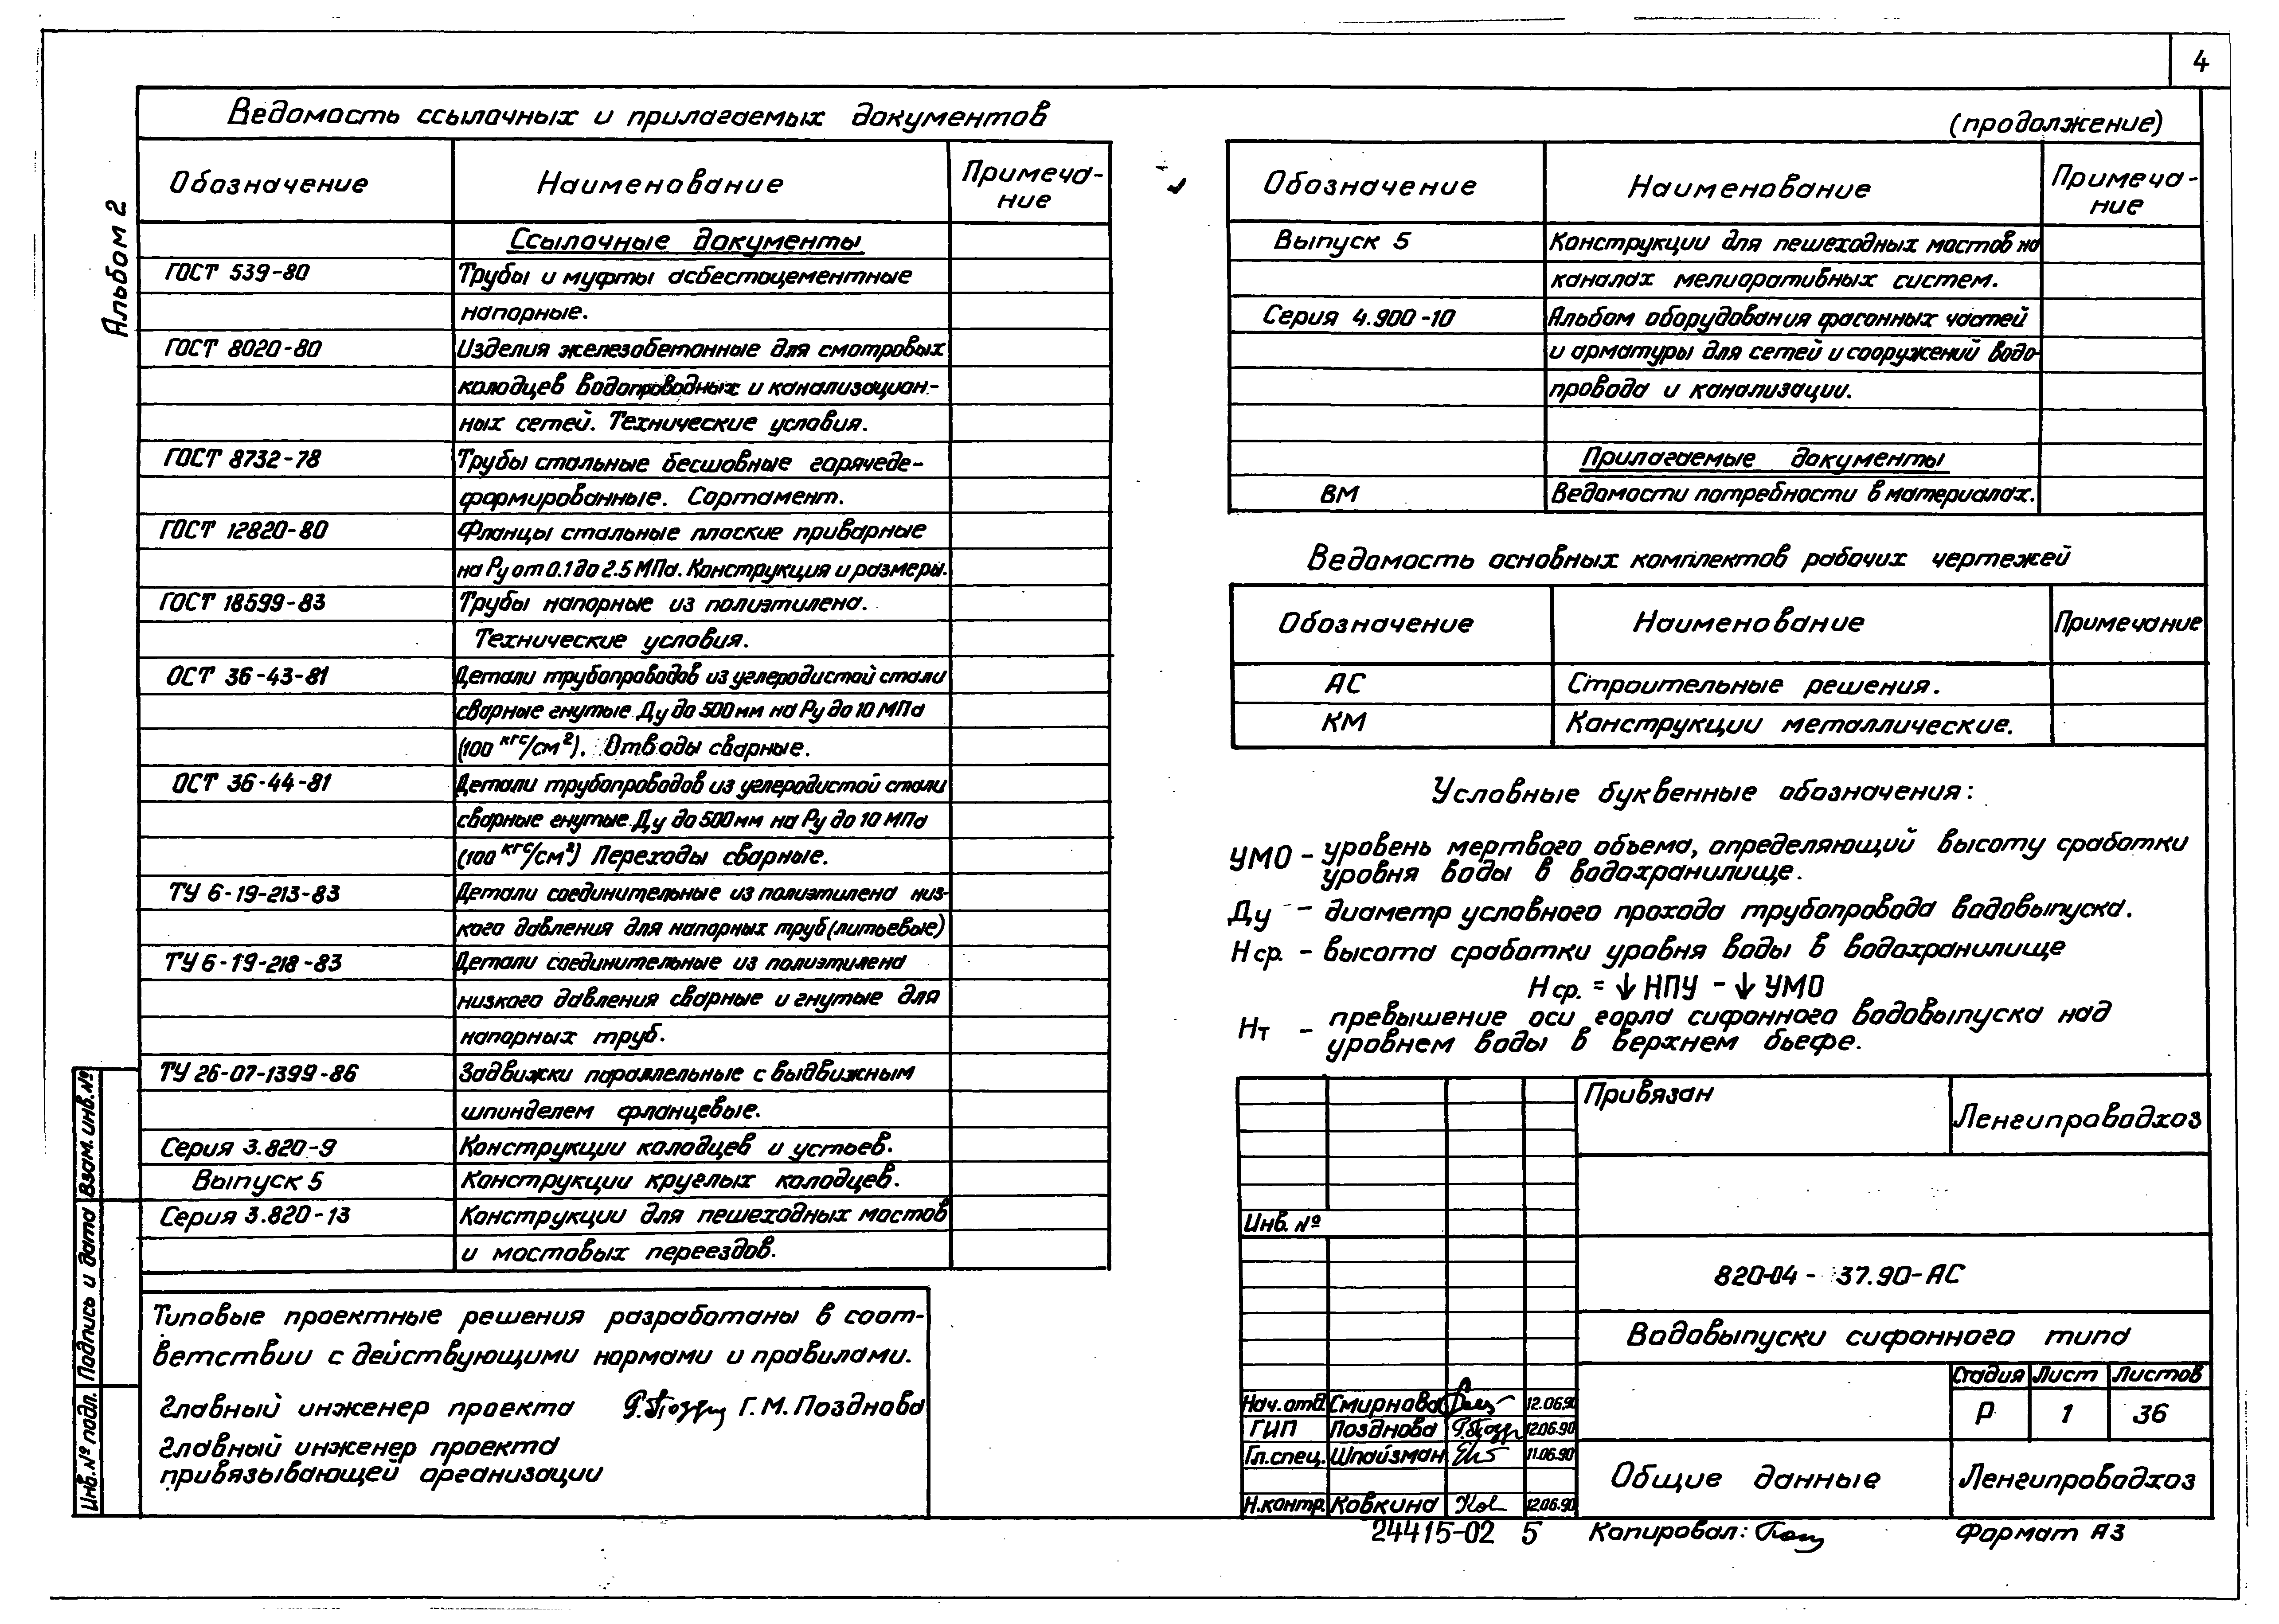 4
Альбом 2
Ведомость ссылочных и прилагаемых документов
Обозначение Наименование Примеча-
ние
Ссылочные документы
ГОСТ 539-80 Трубы и муфты асбестоцементные
напорные.
ГОСТ 8020-80 Изделия железобетонные для смотровых
колодцев водопроводных и канализацион-
ных сетей. Технические условия.
ГОСТ 8732-78 Трубы стальные бесшовные горячеде-
формированные. Сортамент.
ГОСТ 12820-80 Фланцы стальные плоские приварные
на Ру от 0.1 до 2.5 МПа. Конструкция и размеры.
ГОСТ 18599-83 Трубы напорные из полиэтилена.
Технические условия.
ОСТ 36-43-81 Детали трубопроводов из углеродистой стали
сварные гнутые Ду до 500мм на Ру до 10 МПа
(100 кгс/см²). Отводы сварные.
ОСТ 36-44-81 Детали трубопроводов из углеродистой стали
сварные гнутые Ду до 500мм на Ру до 10 МПа
(100 кгс/см²) Переходы сварные.
ТУ 6-19-213-83 Детали соединительные из полиэтилена низ-
кого давления для напорных труб (литьевые)
ТУ 6-19-218-83 Детали соединительные из полиэтилена
низкого давления сварные и гнутые для
напорных труб.
ТУ 26-07-1399-86 Задвижки параллельные с выдвижным
шпинделем фланцевые.
Серия 3.820-9 Конструкции колодцев и устьев.
Выпуск 5 Конструкции круглых колодцев.
Серия 3.820-13 Конструкции для пешеходных мостов
и мостовых переездов.
Типовые проектные решения разработаны в соот-
ветствии с действующими нормами и правилами.
Главный инженер проекта Г. М. Позднова
Главный инженер проекта
привязывающей организации
Инв. № подл. Подпись и дата Взам. инв. №
(продолжение)
Обозначение Наименование Примеча-
ние
Выпуск 5 Конструкции для пешеходных мостов на
каналах мелиоративных систем.
Серия 4.900-10 Альбом оборудования фасонных частей
и арматуры для сетей и сооружений водо-
провода и канализации.
Прилагаемые документы
ВМ Ведомости потребности в материалах.
Ведомость основных комплектов рабочих чертежей
Обозначение Наименование Примечание
АС Строительные решения.
КМ Конструкции металлические.
Условные буквенные обозначения:
УМО - уровень мертвого объема, определяющий высоту сработки
уровня воды в водохранилище.
Ду - диаметр условного прохода трубопровода водовыпуска.
Нср. - высота сработки уровня воды в водохранилище
Нср. = ↓ НПУ - ↓ УМО
Нт - превышение оси горла сифонного водовыпуска над
уровнем воды в верхнем бьефе.
Привязан Ленгипроводхоз
Инв. №
820-04-37.90-АС
Водовыпуски сифонного типа
Стадия Лист Листов
Р 1 36
Нач. отд. Смирнова 12.06.90
ГИП Позднова 12.06.90
Гл. спец. Шпайзман 11.06.90
Н. контр. Ковкина 12.06.90
Общие данные Ленгипроводхоз
24415-02 5 Копировал: Формат А3